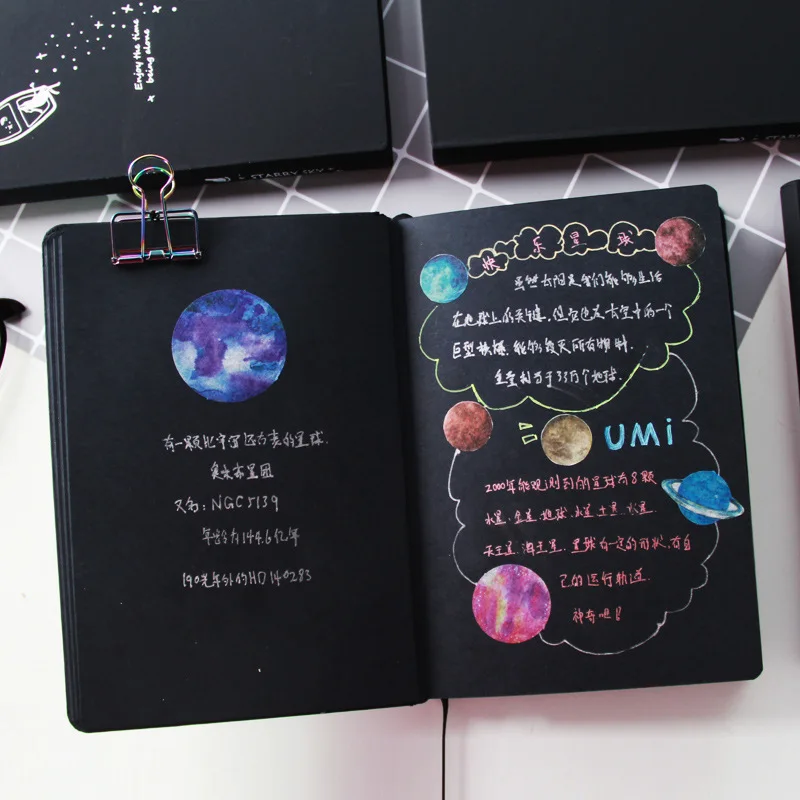 Enjoy the time
being alone
STARRY SKY
有一颗比宇宙还古老的星球.
奥米茄星团
又名: NGC5139
年龄为144.6亿年
190光年外的HD140283
快乐星球
虽然太阳是我们能够生活
在地球上的关键, 但它也是太空中的一个
巨型 能够毁灭所有物种.
重量相当于33万个地球.
UMi
2000年能观测到的星球有8颗
水星、金星、地球、木星、土星、火星、
天王星、海王星. 星球有一定的形状, 有自
己的运行轨道.
神奇吧!!